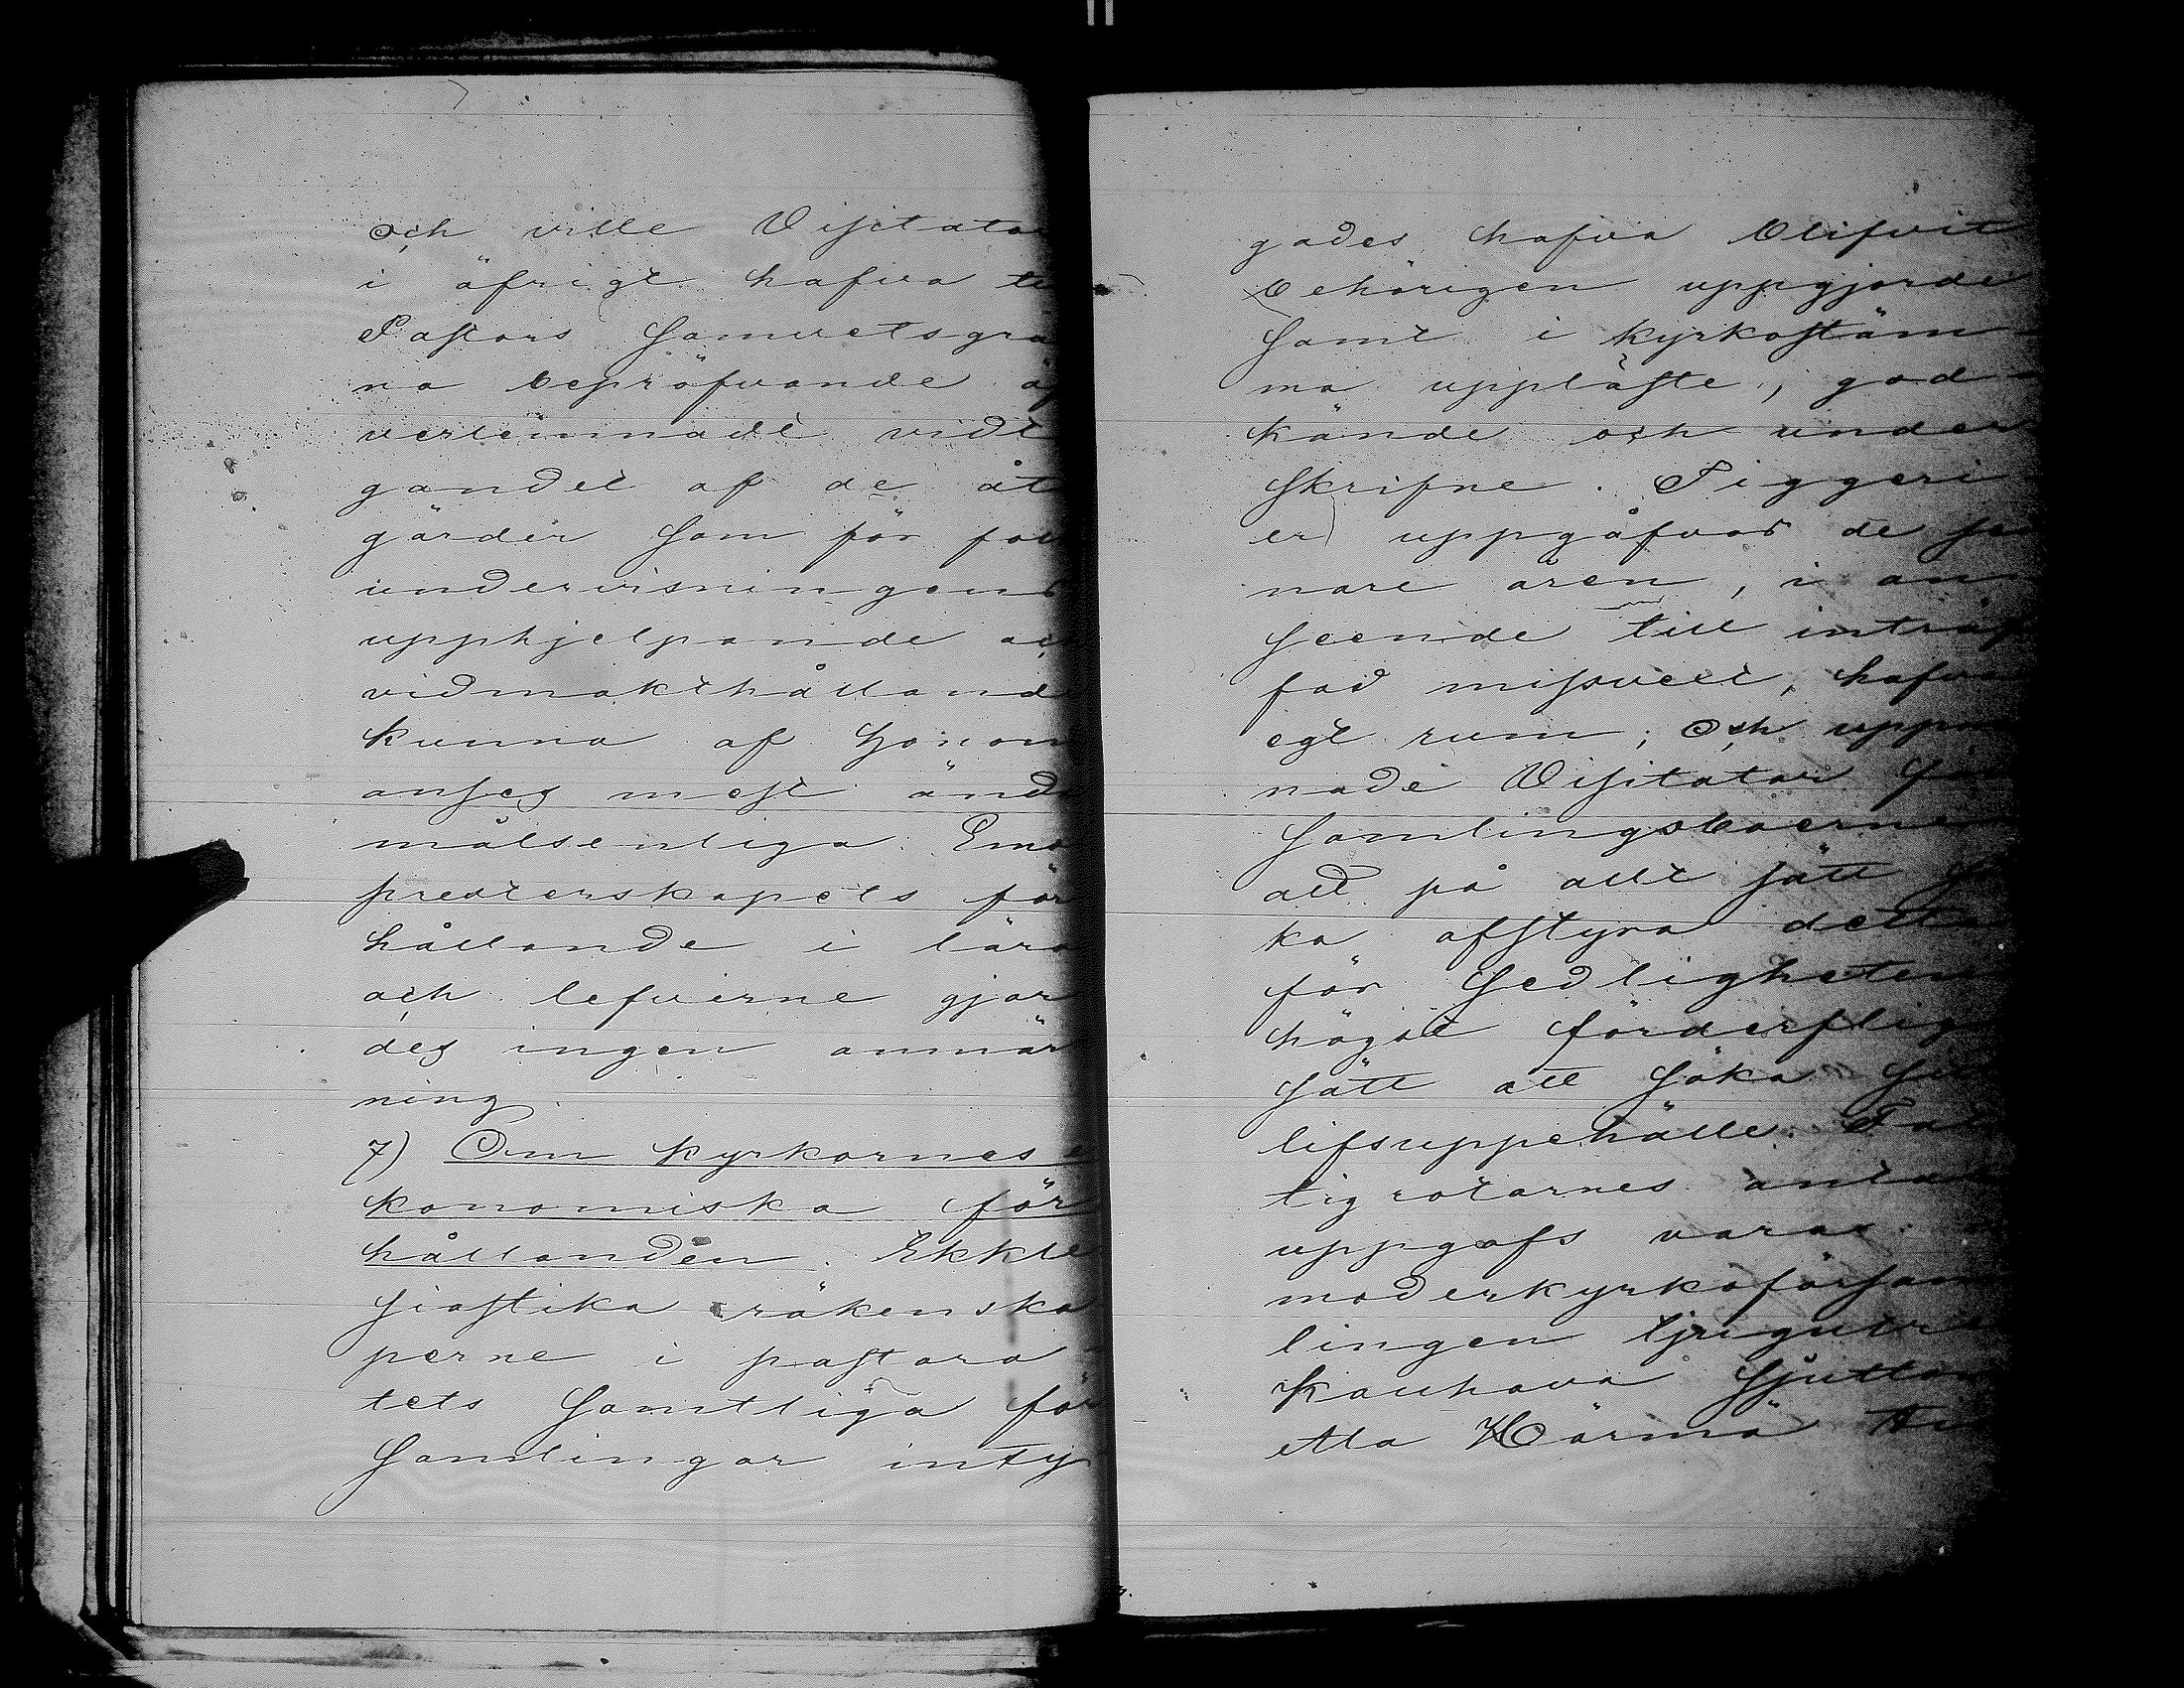 och ville Visitator
i öfrigt hafva til
Pastors samvetsgra
na bepröfvande öf
verlemnadt vidt
gandet af de åt
gärder som för fol
undervisningens
upphjelpande och
vidmakthålland
kunna af honom
anses mest ända
målsenliga. Emo
presterskapets för
hållande i lära
och lefverne gjor
des ingen anmär
ning.
7) Om kyrkornes e
konomiska för
hållanden. Ekkle
siastika räkenska
perne i pastora-
tets samtliga för
samlingar inty
gades hafva blifvit
behörigen uppgjorde
samt i kyrkostäm-
ma uppläste, god-
kände och under
skrifne. Tiggeri
er uppgåfvos de se
nare åren, i an
seende till inträf
fad missvext, hafva
egt rum; och uppma
nade Visitator för
samlingsboerne
att på allt sätt sö
ka afstyra detta
för sedligheten
högst förderflig
sätt att söka sit
lifsuppehälle. Fat
tigrotarnes antal
uppgafs vara i
moderkyrkoförsam
lingen tjugutre
Kauhava sjutton
etta Härmä